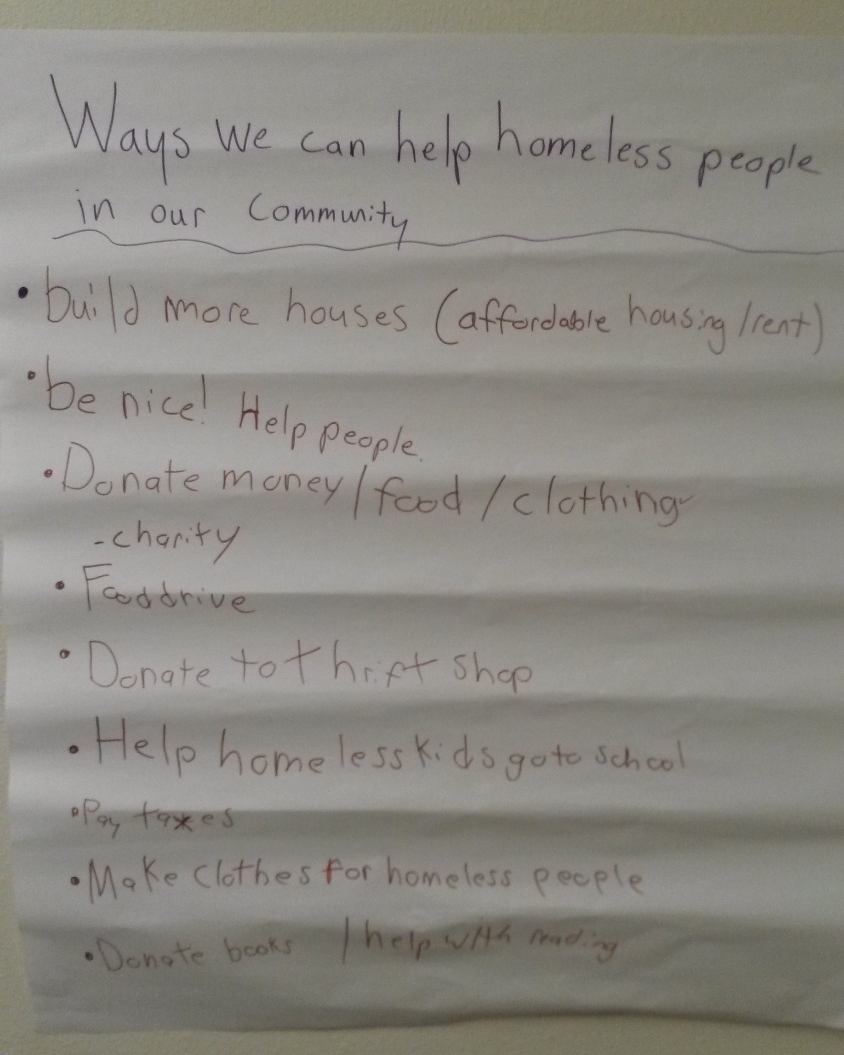 Ways we can help homeless people
in our Community
• build more houses (affordable housing/rent)
• be nice! Help people.
• Donate money/food/clothing
- charity
• Food drive
• Donate to thrift shop
• Help homeless kids go to school
• Pay taxes
• Make clothes for homeless people
• Donate books / help with reading